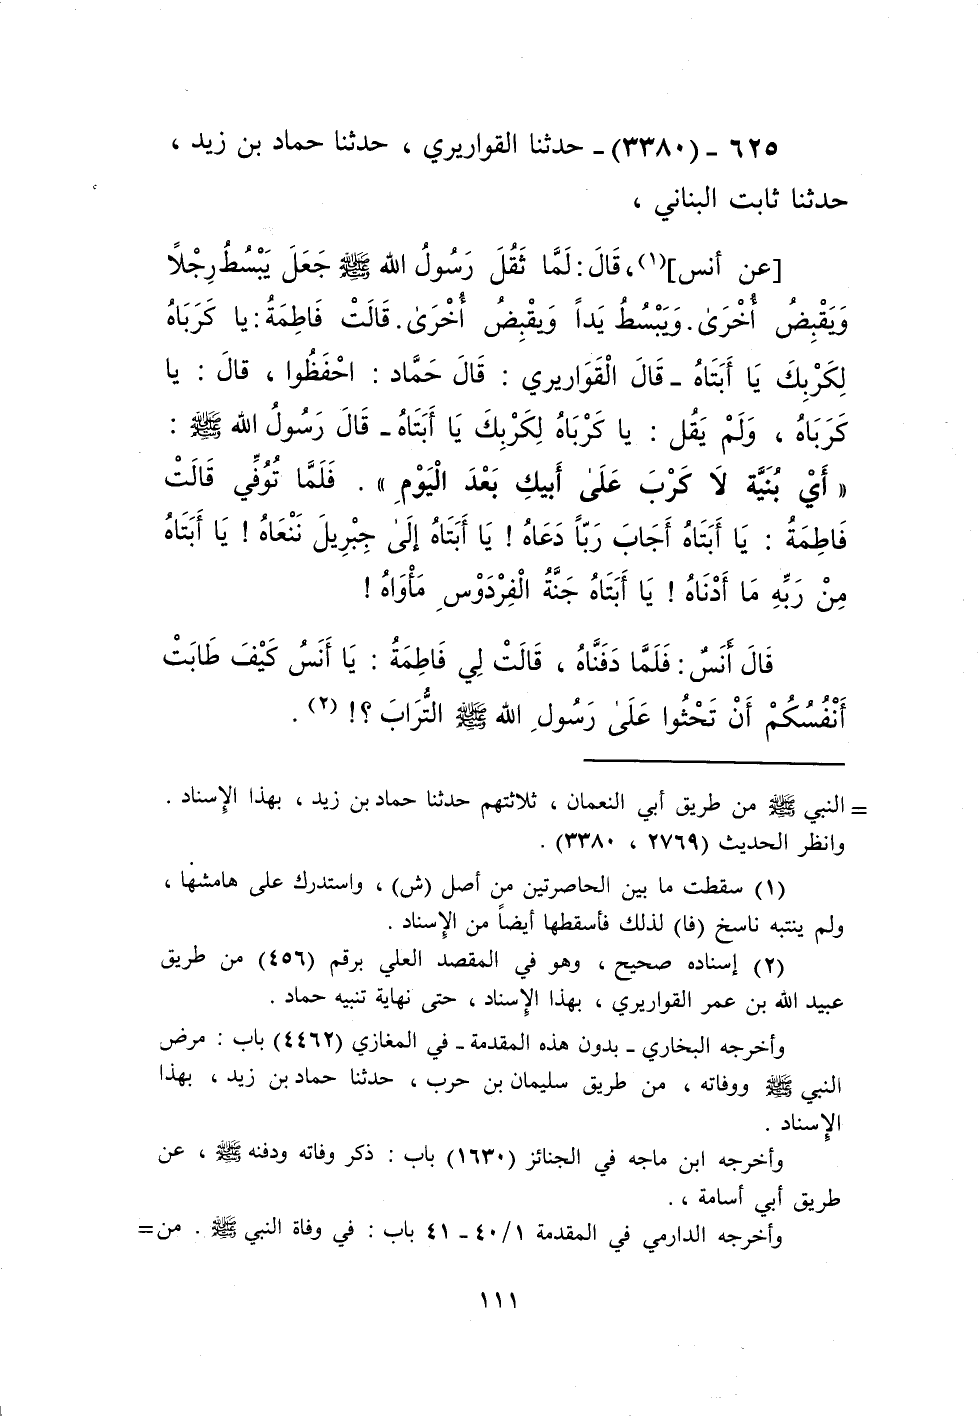 ٦٢٥ - (٣٣٨٠) - حدثنا القواريري ، حدثنا حماد بن زيد ،
حدثنا ثابت البناني ،
[عن أنس]⁽١⁾، قَالَ: لَمَّا ثَقُلَ رَسُولُ الله ﷺ جَعَلَ يَبْسُطُ رِجْلاً
وَيَقْبِضُ أُخْرَىٰ. وَيَبْسُطُ يَداً وَيقْبِضُ أُخْرَىٰ. قَالَتْ فَاطِمَةُ: يا كَرَبَاهُ
لِكَرْبِكَ يَا أَبَتَاهُ - قَالَ الْقَوَاريري : قَالَ حَمَّاد : احْفَظُوا ، قالَ : يا
كَرَبَاهُ ، وَلَمْ يَقُل : يا كَرْبَاهُ لِكَرْبِكَ يَا أَبَتَاهُ - قَالَ رَسُولُ الله ﷺ :
« أَيْ بُنَيَّة لَا كَرْبَ عَلَىٰ أَبيكِ بَعْدَ الْيَوْمِ » . فَلَمَّا تُوُفِّي قَالَتْ
فَاطِمَةُ : يَا أَبَتَاهُ أَجَابَ رَبّاً دَعَاهُ ! يَا أَبَتَاهُ إِلَىٰ جِبْرِيلَ نَنْعَاهُ ! يَا أَبَتَاهُ
مِنْ رَبِّهِ مَا أَدْنَاهُ ! يَا أَبَتَاهُ جَنَّةُ الْفِرْدَوْسِ مَأْوَاهُ !
قَالَ أَنَسٌ : فَلَمَّا دَفَنَّاهُ ، قَالَتْ لِي فَاطِمَةُ : يَا أَنَسُ كَيْفَ طَابَتْ
أَنْفُسُكُمْ أَنْ تَحْثُوا عَلَىٰ رَسُولِ الله ﷺ التُّرَابَ ؟! ⁽٢⁾ .
= النبي ﷺ من طريق أبي النعمان ، ثلاثتهم حدثنا حماد بن زيد ، بهذا الإسناد .
وانظر الحديث (٢٧٦٩ ، ٣٣٨٠) .
(١) سقطت ما بين الحاصرتين من أصل (ش) ، واستدرك على هامشها ،
ولم ينتبه ناسخ (فا) لذلك فأسقطها أيضاً من الإسناد .
(٢) إسناده صحيح ، وهو في المقصد العلي برقم (٤٥٦) من طريق
عبيد الله بن عمر القواريري ، بهذا الإسناد ، حتى نهاية تنبيه حماد .
وأخرجه البخاري - بدون هذه المقدمة - في المغازي (٤٤٦٢) باب : مرض
النبي ﷺ ووفاته ، من طريق سليمان بن حرب ، حدثنا حماد بن زيد ، بهذا
الإسناد .
وأخرجه ابن ماجه في الجنائز (١٦٣٠) باب : ذكر وفاته ودفنه ﷺ ، عن
طريق أبي أسامة ، .
وأخرجه الدارمي في المقدمة ٤٠/١ - ٤١ باب : في وفاة النبي ﷺ . من =
١١١